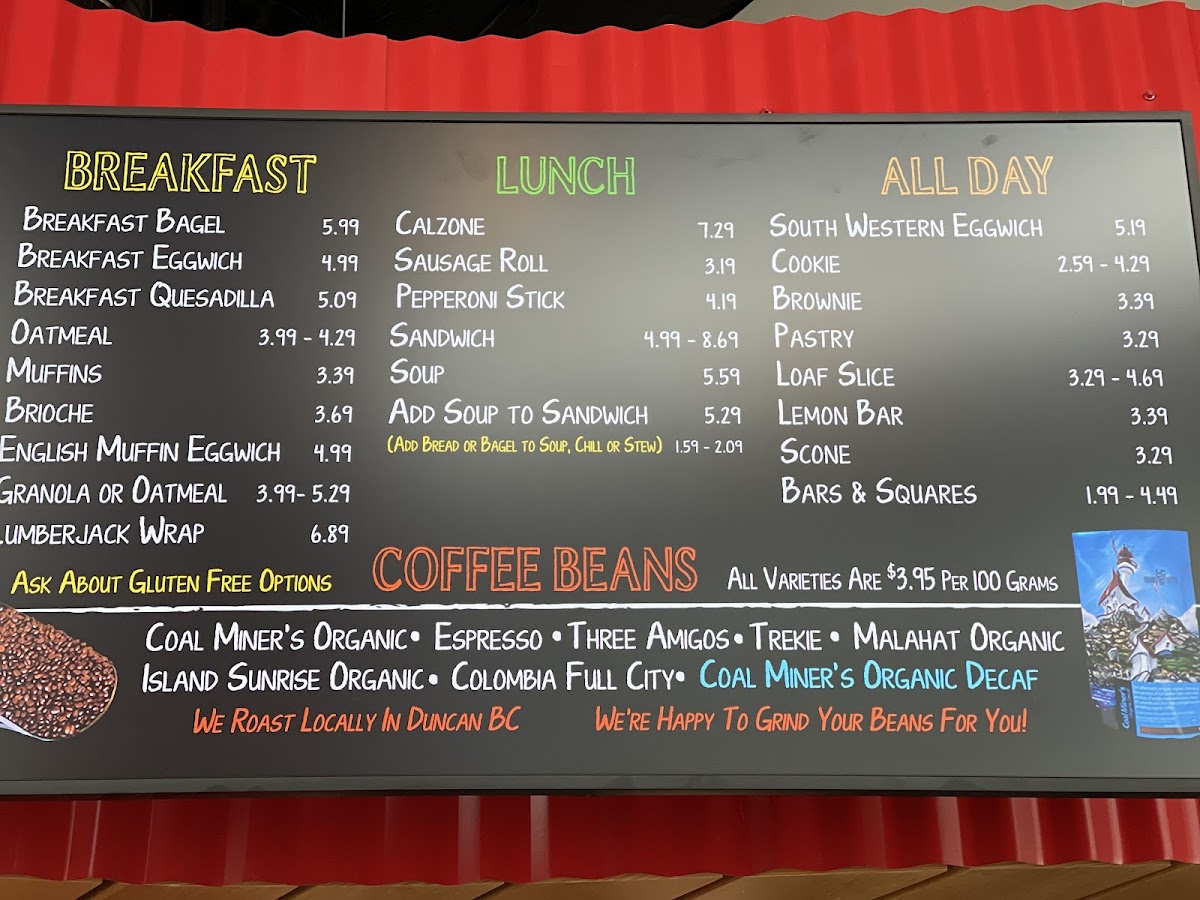 BREAKFAST
BREAKFAST BAGEL 5.99
BREAKFAST EGGWICH 4.99
BREAKFAST QUESADILLA 5.09
OATMEAL 3.99 - 4.29
MUFFINS 3.39
BRIOCHE 3.69
ENGLISH MUFFIN EGGWICH 4.99
GRANOLA OR OATMEAL 3.99- 5.29
LUMBERJACK WRAP 6.89
ASK ABOUT GLUTEN FREE OPTIONS
LUNCH
CALZONE 7.29
SAUSAGE ROLL 3.19
PEPPERONI STICK 4.19
SANDWICH 4.99 - 8.69
SOUP 5.59
ADD SOUP TO SANDWICH 5.29
(ADD BREAD OR BAGEL TO SOUP, CHILL OR STEW) 1.59 - 2.09
ALL DAY
SOUTH WESTERN EGGWICH 5.19
COOKIE 2.59 - 4.29
BROWNIE 3.39
PASTRY 3.29
LOAF SLICE 3.29 - 4.69
LEMON BAR 3.39
SCONE 3.29
BARS & SQUARES 1.99 - 4.49
COFFEE BEANS ALL VARIETIES ARE $3.95 PER 100 GRAMS
COAL MINER'S ORGANIC • ESPRESSO • THREE AMIGOS • TREKIE • MALAHAT ORGANIC
ISLAND SUNRISE ORGANIC • COLOMBIA FULL CITY • COAL MINER'S ORGANIC DECAF
WE ROAST LOCALLY IN DUNCAN BC WE'RE HAPPY TO GRIND YOUR BEANS FOR YOU!